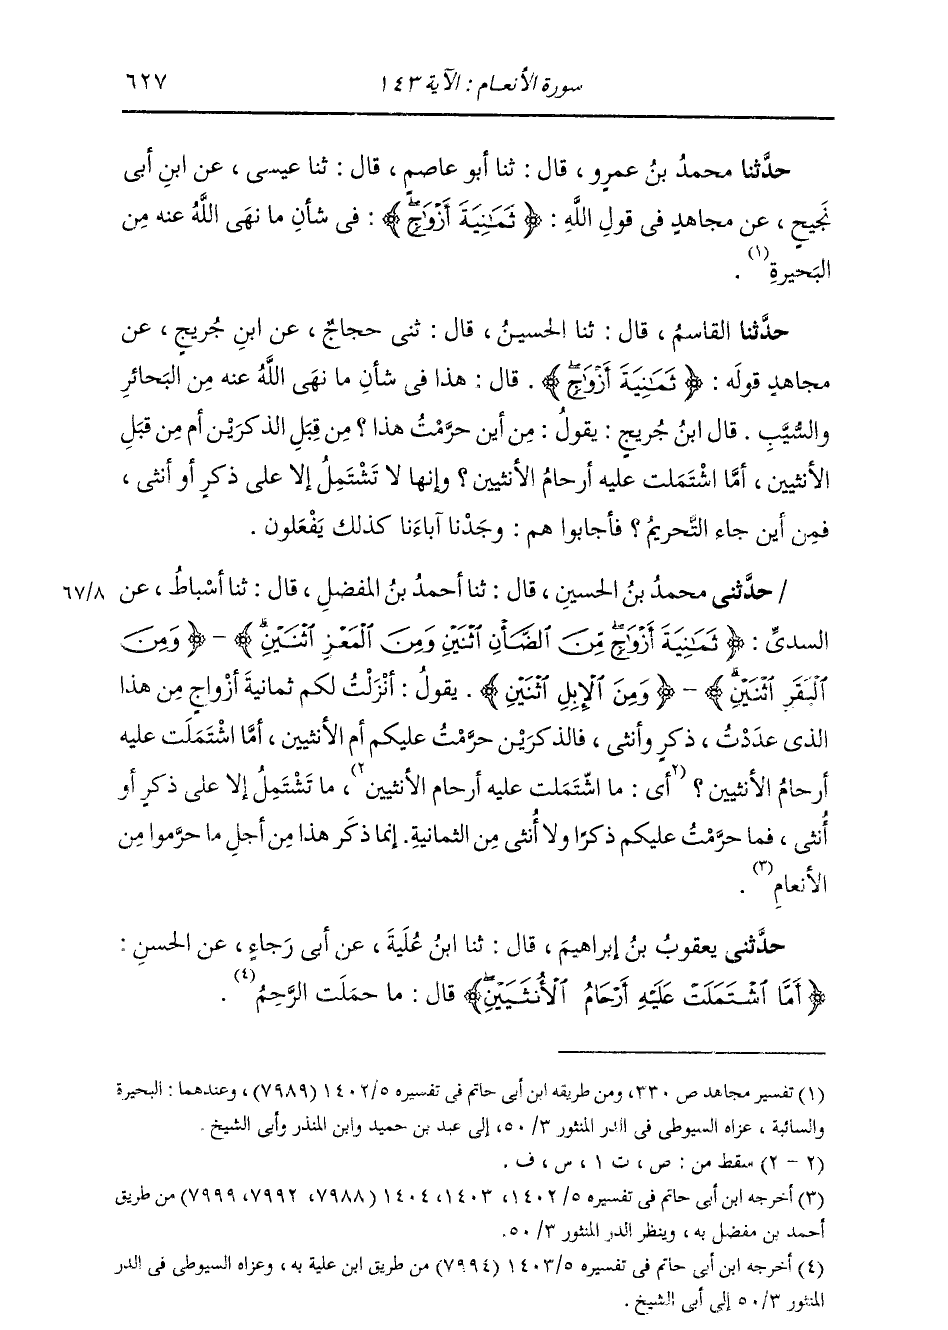 سورة الأنعام : الآية ١٤٣ ٦٢٧
حدَّثنا محمدُ بنُ عمرٍو ، قال : ثنا أبو عاصمٍ ، قال : ثنا عيسى ، عن ابنِ أبى
نَجيحٍ ، عن مجاهدٍ فى قولِ اللَّهِ : ﴿ ثَمَٰنِيَةَ أَزْوَٰجٍۖ ﴾ : فى شأنِ ما نهَى اللَّهُ عنه مِن
البَحيرةِ(١) .
حدَّثنا القاسمُ ، قال : ثنا الحسينُ ، قال : ثنى حجاجٌ ، عن ابنِ جُريجٍ ، عن
مجاهدٍ قولَه : ﴿ ثَمَٰنِيَةَ أَزْوَٰجٍۖ ﴾ . قال : هذا فى شأنِ ما نهَى اللَّهُ عنه مِن البَحائرِ
والسُّيَّبِ . قال ابنُ جُريجٍ : يقولُ : مِن أين حرَّمْتُ هذا ؟ مِن قِبَلِ الذكرَيْن أم مِن قبَلِ
الأنثيين ، أمَّا اشْتَمَلت عليه أرحامُ الأنثيين ؟ وإنها لا تَشْتَمِلُ إلا على ذكرٍ أو أنثى ،
فمِن أين جاء التَّحريمُ ؟ فأجابوا هم : وجَدْنا آباءَنا كذلك يَفْعَلون .
/ حدَّثنى محمدُ بنُ الحسينِ ، قال : ثنا أحمدُ بنُ المفضلِ ، قال : ثنا أسْباطُ ، عن ٦٧/٨
السدىِّ : ﴿ ثَمَٰنِيَةَ أَزْوَٰجٍۖ مِّنَ ٱلضَّأْنِ ٱثْنَيْنِ وَمِنَ ٱلْمَعْزِ ٱثْنَيْنِۗ ﴾ – ﴿ وَمِنَ
ٱلْبَقَرِ ٱثْنَيْنِۗ ﴾ – ﴿ وَمِنَ ٱلْإِبِلِ ٱثْنَيْنِ ﴾ . يقولُ : أنْزَلْتُ لكم ثمانيةَ أزْواجٍ مِن هذا
الذى عدَدْتُ ، ذكرٍ وأنثى ، فالذكرَيْن حرَّمْتُ عليكم أم الأنثيين ، أمَّا اشْتَمَلَت عليه
أرحامُ الأنثيين ؟ (٢أى : ما اشْتَملت عليه أرحام الأنثيين٢) ، ما تَشْتَمِلُ إلا على ذكرٍ أو
أُنثى ، فما حرَّمْتُ عليكم ذكرًا ولا أُنثى مِن الثمانيةِ. إنما ذكَر هذا مِن أجلِ ما حرَّموا مِن
الأنعامِ(٣) .
حدَّثنى يعقوبُ بنُ إبراهيمَ ، قال : ثنا ابنُ عُلَيةَ ، عن أبى رَجاءٍ ، عن الحسنِ :
﴿ أَمَّا ٱشْتَمَلَتْ عَلَيْهِ أَرْحَامُ ٱلْأُنثَيَيْنِۖ ﴾ قال : ما حمَلَت الرَّحِمُ(٤) .
(١) تفسير مجاهد ص ٣٣٠، ومن طريقه ابن أبى حاتم فى تفسيره ١٤٠٢/٥ (٧٩٨٩) ، وعندهما : البحيرة
والسائبة ، عزاه السيوطى فى الدر المنثور ٣/ ٥٠، إلى عبد بن حميد وابن المنذر وأبى الشيخ .
(٢ – ٢) سقط من : ص ، ت ١ ، س ، ف .
(٣) أخرجه ابن أبى حاتم فى تفسيره ٥/ ١٤٠٢، ١٤٠٣، ١٤٠٤ (٧٩٨٨، ٧٩٩٢، ٧٩٩٩) من طريق
أحمد بن مفضل به ، وينظر الدر المنثور ٣/ ٥٠.
(٤) أخرجه ابن أبى حاتم فى تفسيره ١٤٠٣/٥ (٧٩٩٤) من طريق ابن علية به ، وعزاه السيوطى فى الدر
المنثور ٥٠/٣ إلى أبى الشيخ .